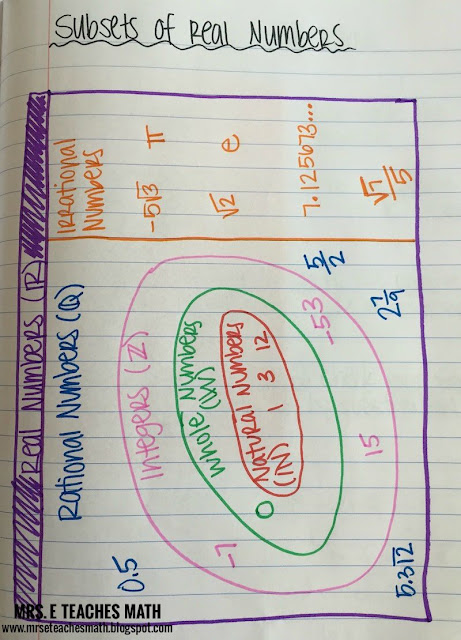 Subsets of Real Numbers
Real Numbers (ℝ)
Irrational
Numbers
-5√3 π
√2 e
7.125673...
√7/5
Rational Numbers (ℚ)
0.5
5/2
2 7/9
5.31̅2̅
Integers (ℤ)
-7
-53
15
Whole Numbers
(W)
0
Natural Numbers
(ℕ) 1 3 12
MRS. E TEACHES MATH
www.mrseteachesmath.blogspot.com